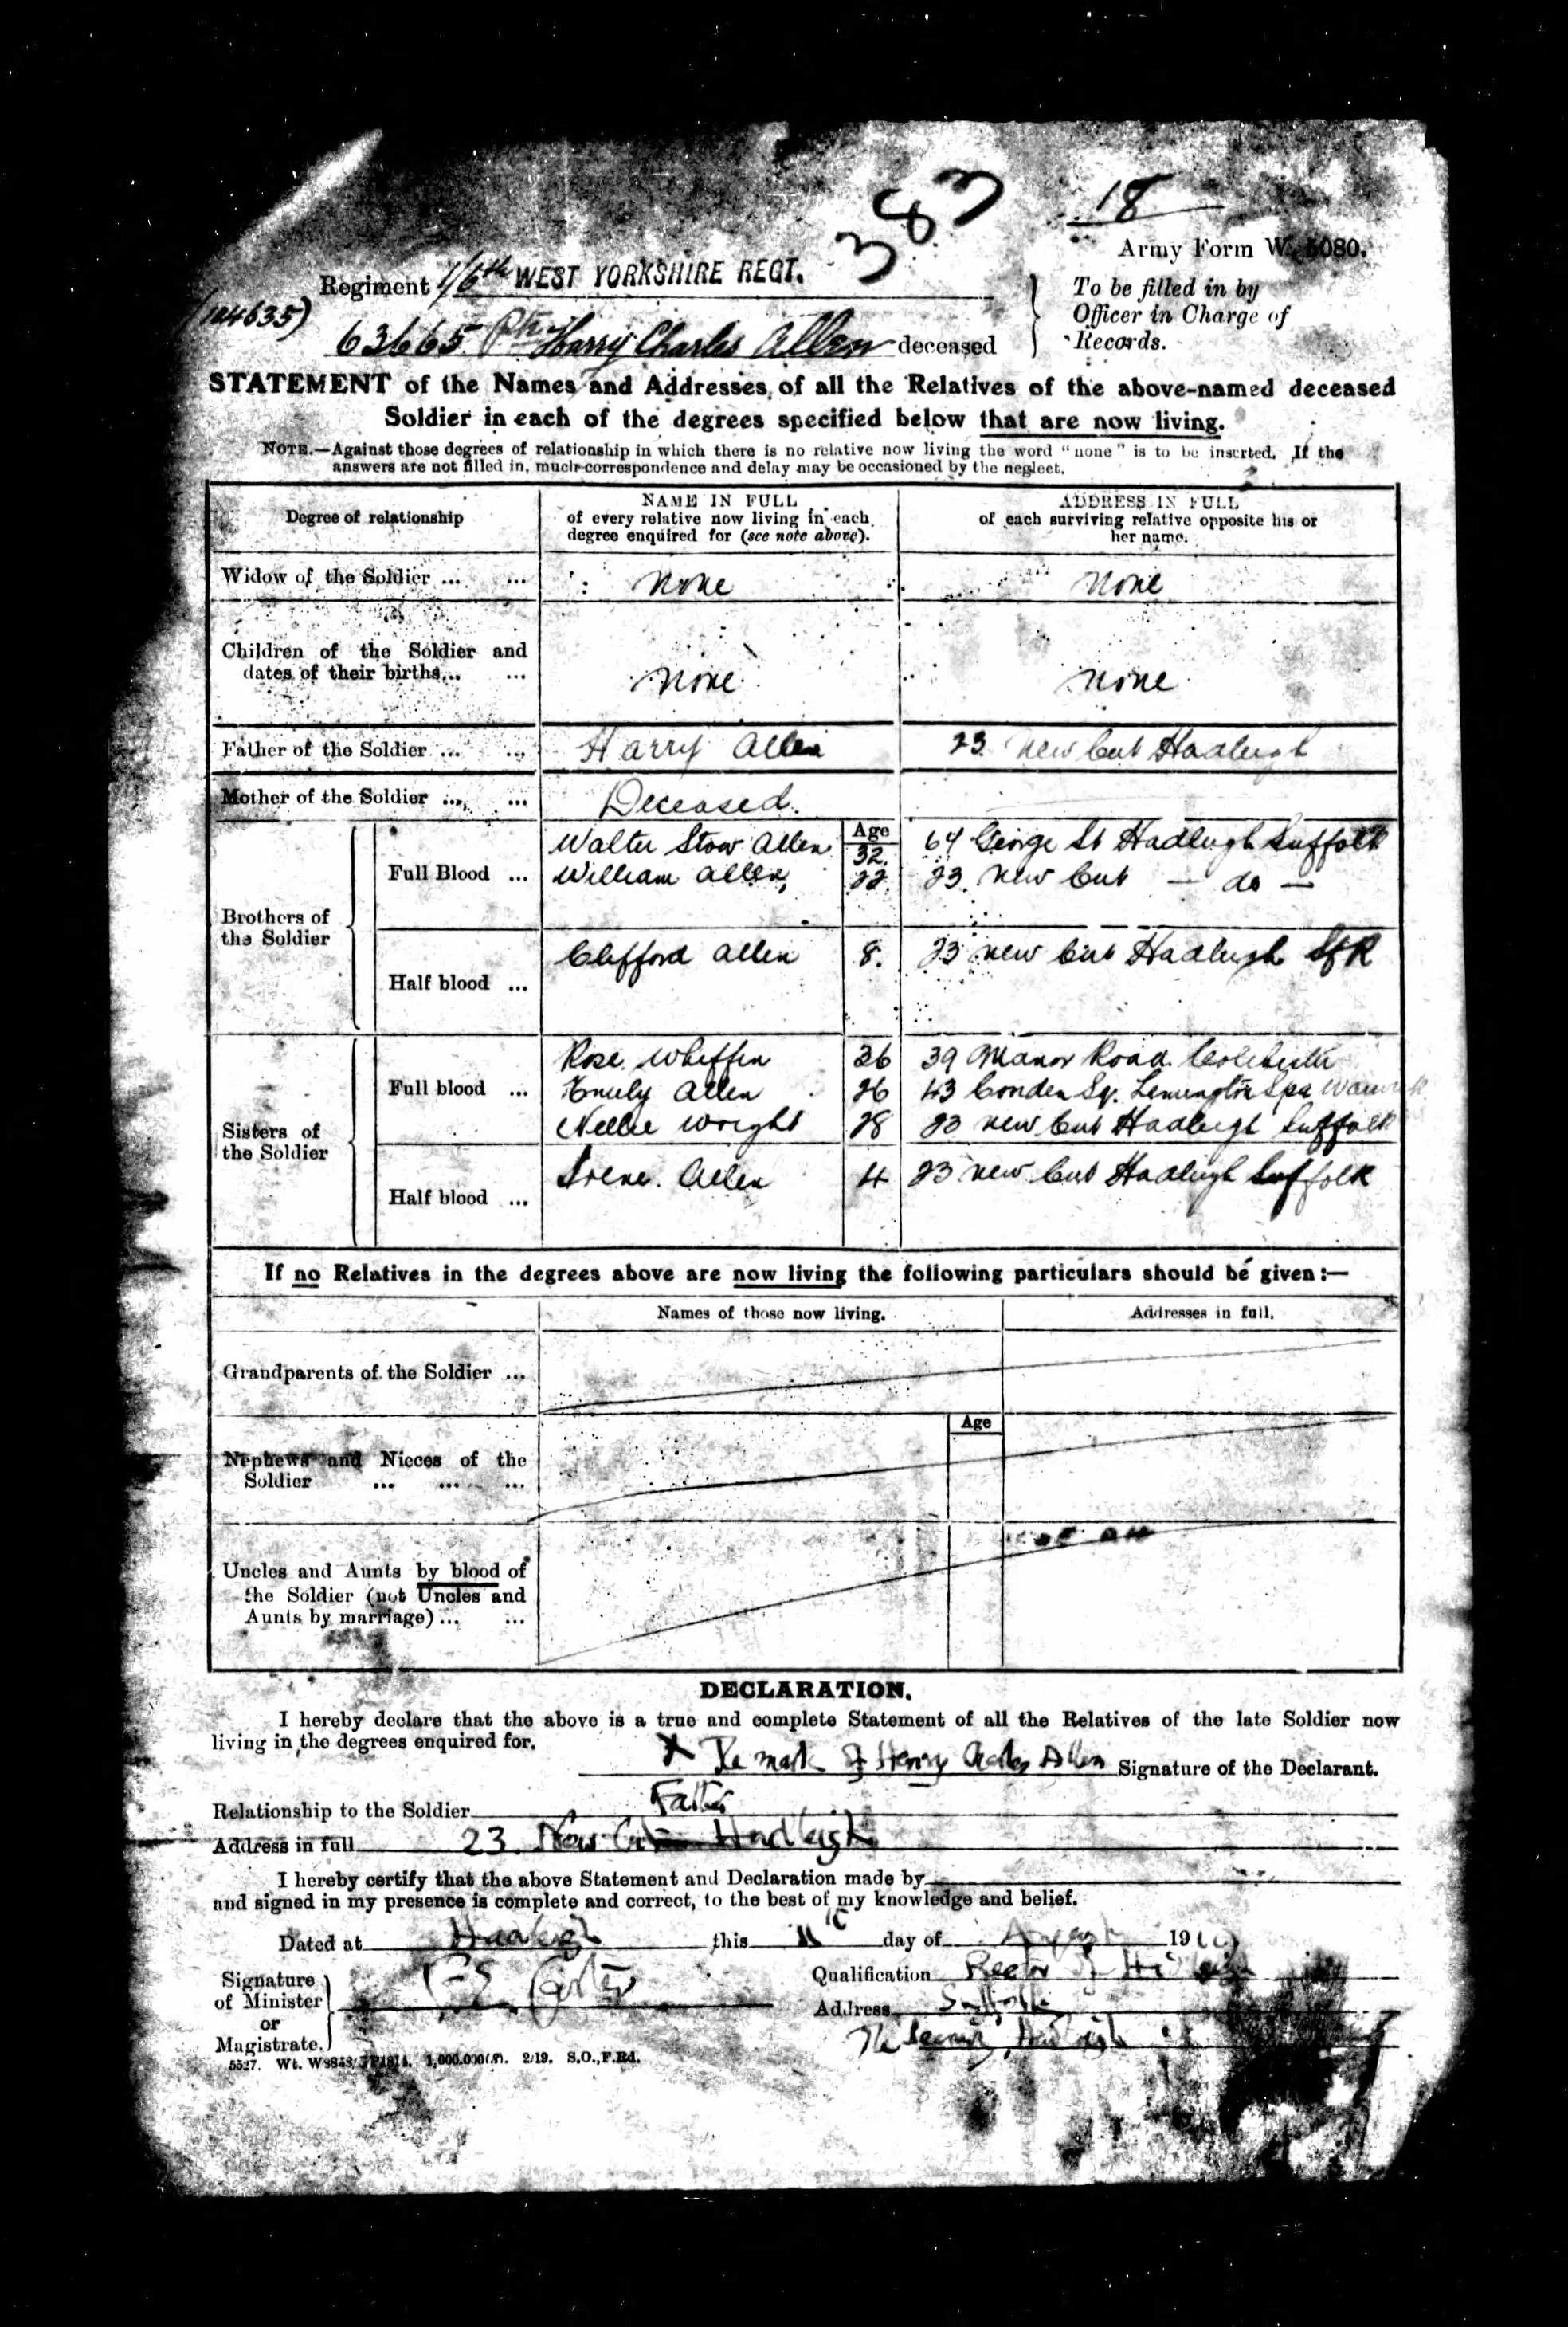 383
18
Army Form W. 5080.
Regiment 1/6th WEST YORKSHIRE REGT.
To be filled in by
Officer in Charge of
Records.
(104635)
63665 Pte Harry Charles Allen deceased
STATEMENT of the Names and Addresses of all the Relatives of the above-named deceased
Soldier in each of the degrees specified below that are now living.
NOTE.—Against those degrees of relationship in which there is no relative now living the word "none" is to be inserted. If the
answers are not filled in, much correspondence and delay may be occasioned by the neglect.
Degree of relationship
NAME IN FULL
of every relative now living in each
degree enquired for (see note above).
ADDRESS IN FULL
of each surviving relative opposite his or
her name.
Widow of the Soldier ... ... None None
Children of the Soldier and
dates of their births... ... None None
Father of the Soldier ... ... Harry Allen 23 New Cut Hadleigh
Mother of the Soldier ... ... Deceased.
Brothers of
the Soldier
Full Blood ...
Age
Walter Stow Allen 32. 64 George St Hadleigh Suffolk
William Allen, 22. 23. New Cut — do —
Half blood ...
Clifford Allen 8. 23 New Cut Hadleigh Sfk
Sisters of
the Soldier
Full blood ...
Rose Wheffen 36 39 Manor Road Colchester
Emily Allen 26 43 Conden Sq. Lemington Spa Warwick
Nellie Wright 28 23 New Cut Hadleigh Suffolk
Half blood ...
Irene. Allen 4 23 New Cut Hadleigh Suffolk
If no Relatives in the degrees above are now living the following particulars should be given:—
Names of those now living. Addresses in full.
Grandparents of the Soldier ...
Age
Nephews and Nieces of the
Soldier ... ... ...
Uncles and Aunts by blood of
the Soldier (not Uncles and
Aunts by marriage)... ...
DECLARATION.
I hereby declare that the above is a true and complete Statement of all the Relatives of the late Soldier now
living in the degrees enquired for.
X The mark of Henry Charles Allen Signature of the Declarant.
Relationship to the Soldier Father
Address in full 23. New Cut Hadleigh
I hereby certify that the above Statement and Declaration made by
and signed in my presence is complete and correct, to the best of my knowledge and belief.
Dated at Hadleigh this 11th day of August 1919
Signature
of Minister
or
Magistrate.
Carter
Qualification Rector of Hadleigh
Address Suffolk
The Deanery, Hadleigh
5527. Wt. 1,000,000 2/19. S.O.,F.Rd.